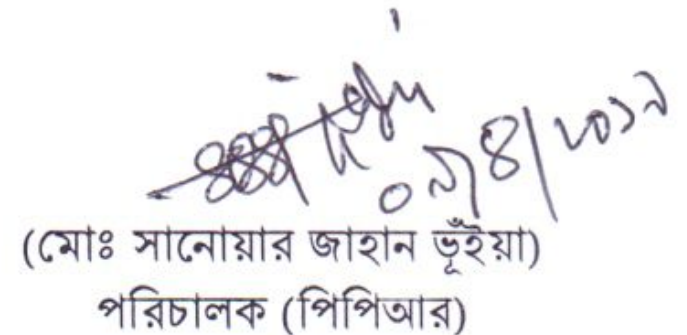 ০৯/৪/২০১৯
(মোঃ সানোয়ার জাহান ভূঁইয়া)
পরিচালক (পিপিআর)